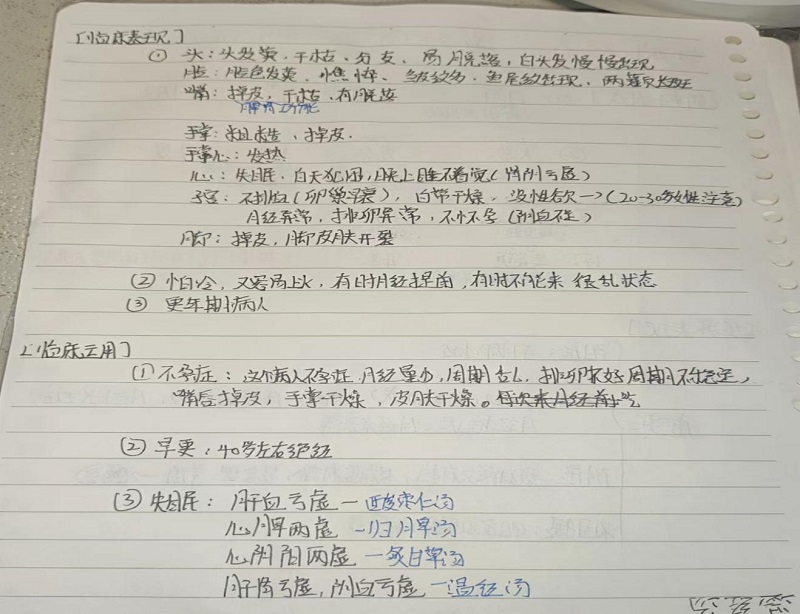 [临床表现]
① 头：头发黄，干枯，分叉，易脱落，白头发慢慢出现
脸：脸色发黄，憔悴、皱纹多、鱼尾纹出现，两颊长斑
嘴：掉皮，干枯、有脱妆
脾胃功能
手掌：粗糙，掉皮.
手掌心：发热
心：失眠.白天犯困，晚上睡不着觉(肾阴亏虚)
子宫：不排卵(卵巢早衰)，白带干燥，没性欲→(20-30多女性注意)
月经异常，排卵异常，不怀不孕(阴血不足)
脚：掉皮，脚皮肤开裂
② 怕冷，又容易上火，有时月经提前，有时不能来 很乱状态
③ 更年期病人
[临床运用]
① 不孕症：这个病人不孕症.月经量少，周期杂乱，排卵不好周期不稳定，
嘴唇掉皮，手掌干燥，皮肤干燥。每次来月经前
② 早更：40岁左右绝经
③ 失眠：肝血亏虚—酸枣仁汤
心脾两虚—归脾汤
心阴阳两虚—炙甘草汤
肝肾亏虚，阴血亏虚—温经汤
温经汤